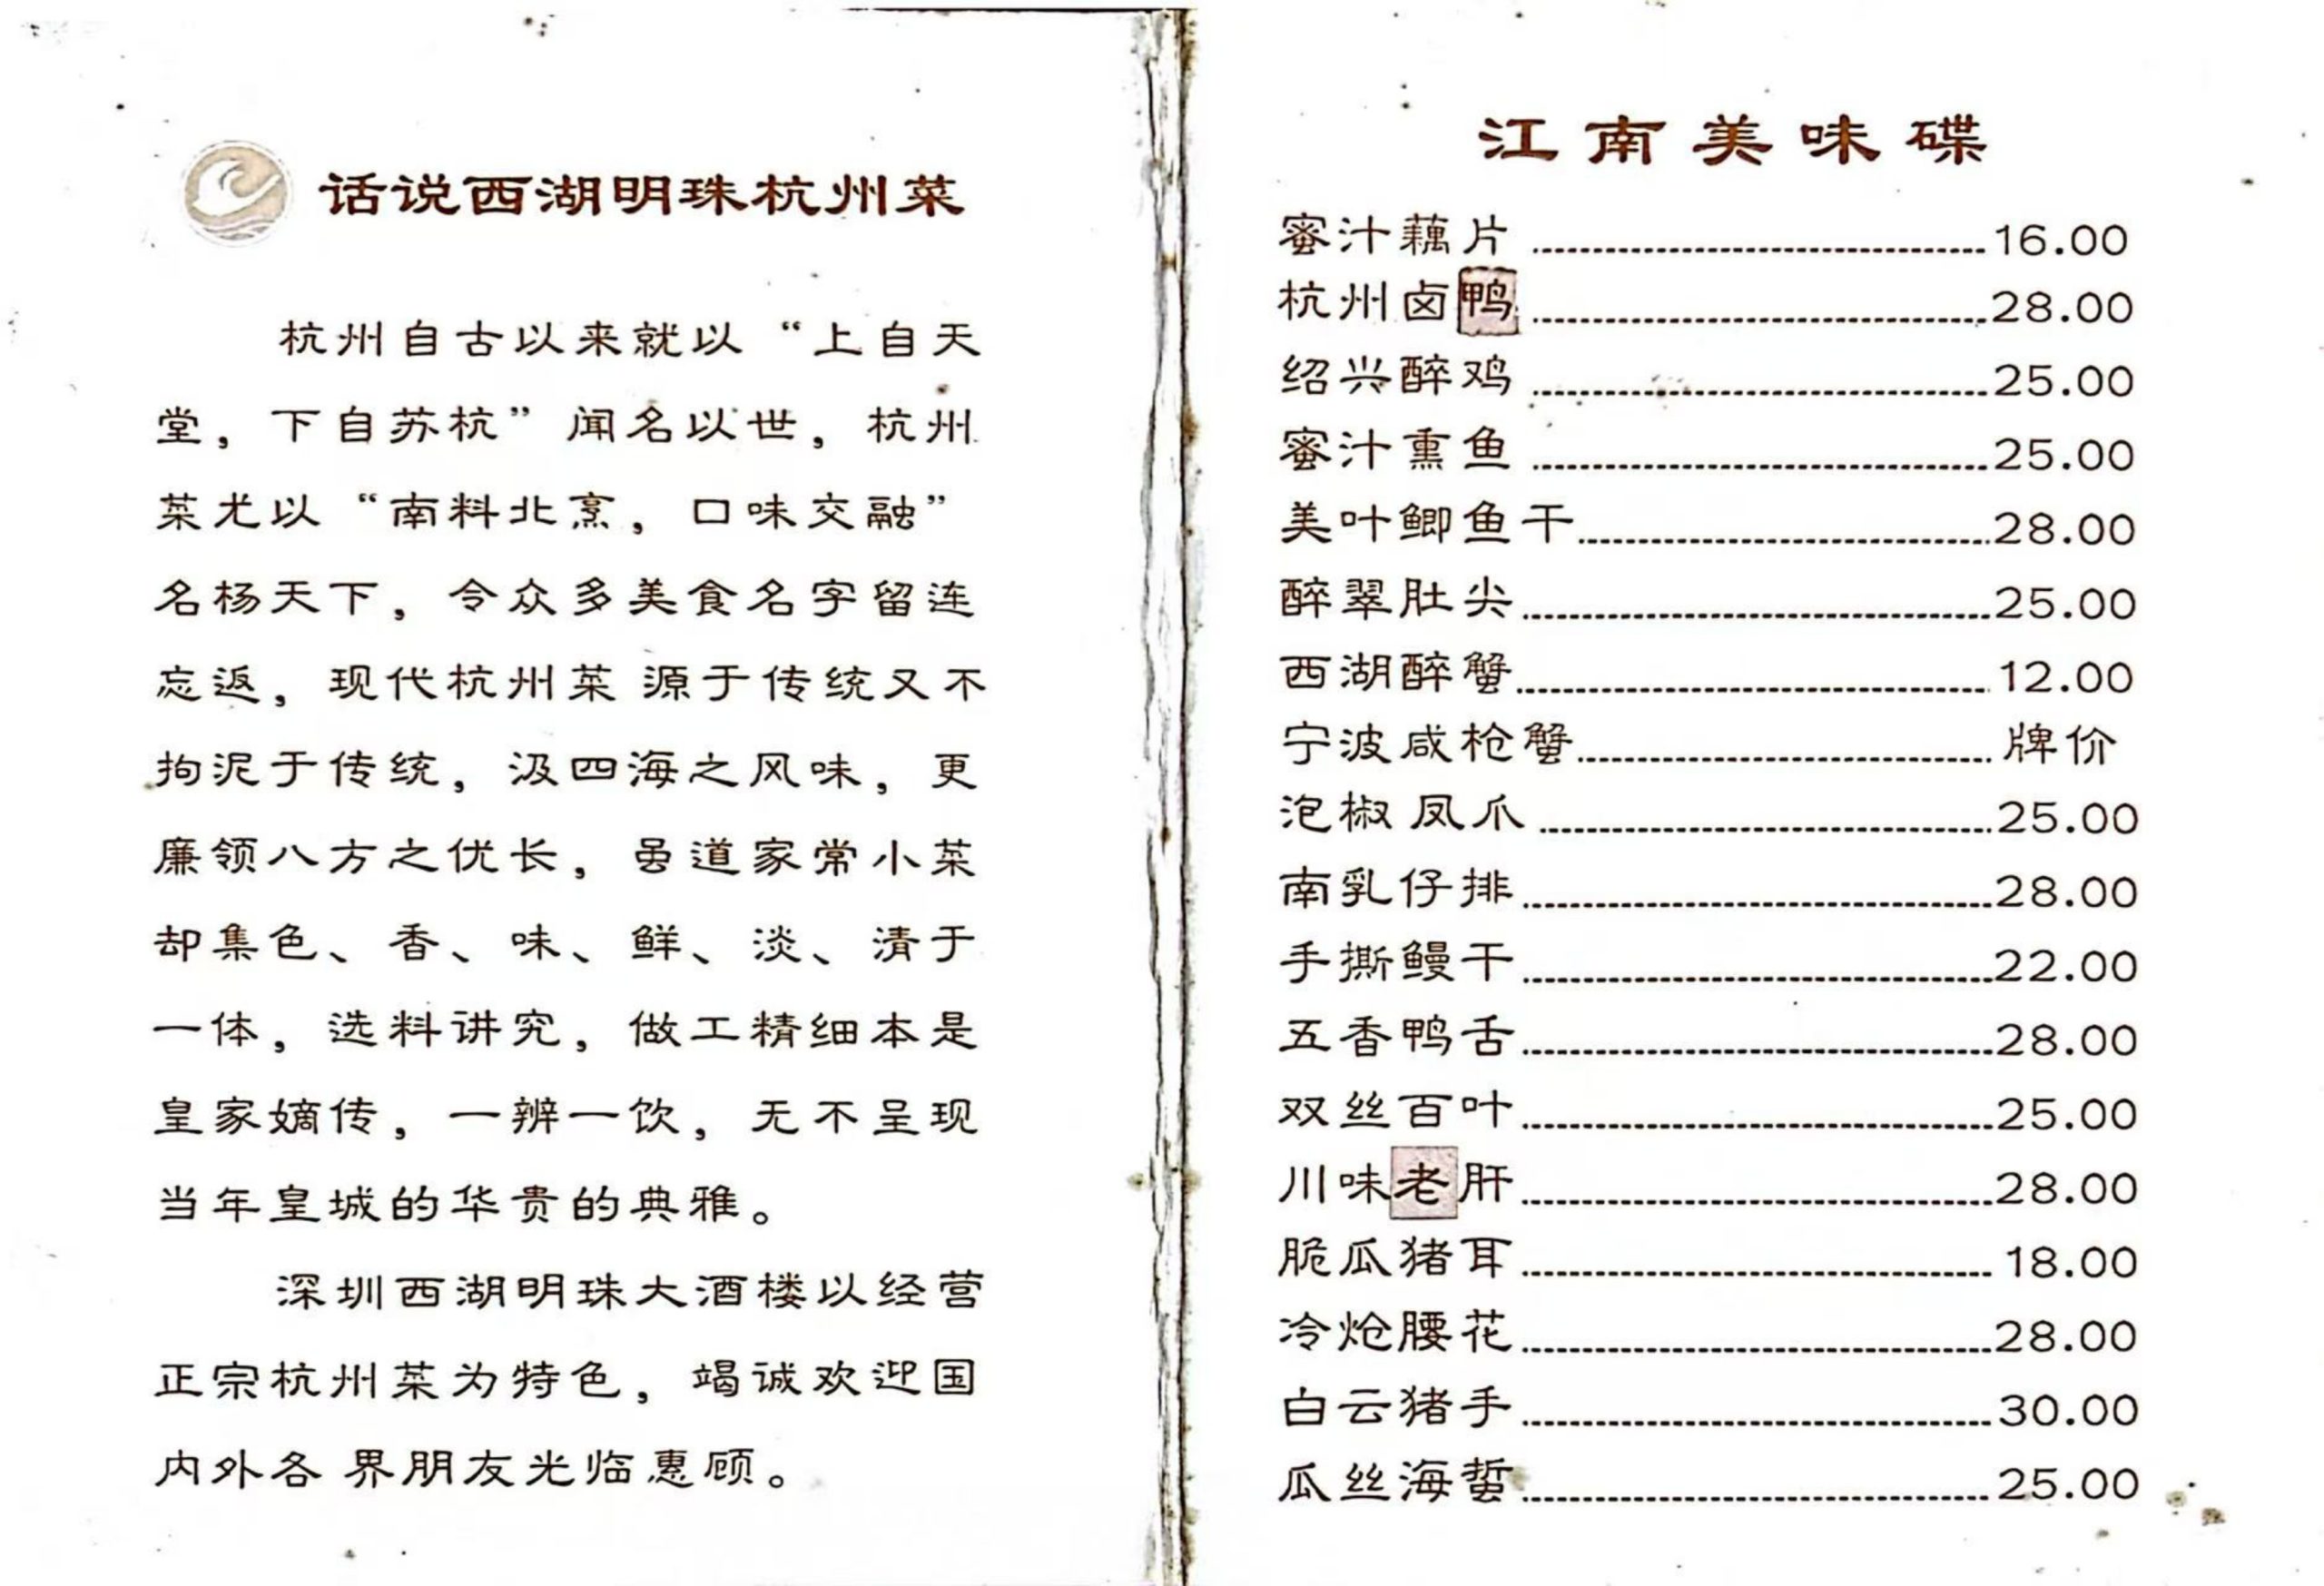 话说西湖明珠杭州菜
杭州自古以来就以“上自天
堂，下自苏杭”闻名以世，杭州
菜尤以“南料北烹，口味交融”
名杨天下，令众多美食名字留连
忘返，现代杭州菜 源于传统又不
拘泥于传统，汲四海之风味，更
廉领八方之优长，虽道家常小菜
却集色、香、味、鲜、淡、清于
一体，选料讲究，做工精细本是
皇家嫡传，一辨一饮，无不呈现
当年皇城的华贵的典雅。
深圳西湖明珠大酒楼以经营
正宗杭州菜为特色，竭诚欢迎国
内外各 界朋友光临惠顾。
江南美味碟
蜜汁藕片 16.00
杭州卤鸭 28.00
绍兴醉鸡 25.00
蜜汁熏鱼 25.00
美叶鲫鱼干 28.00
醉翠肚尖 25.00
西湖醉蟹 12.00
宁波咸枪蟹 牌价
泡椒 凤爪 25.00
南乳仔排 28.00
手撕鳗干 22.00
五香鸭舌 28.00
双丝百叶 25.00
川味老肝 28.00
脆瓜猪耳 18.00
冷炝腰花 28.00
白云猪手 30.00
瓜丝海蜇 25.00